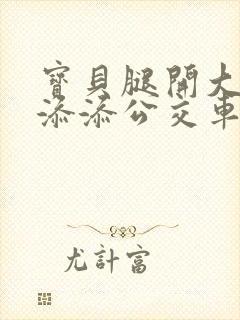 寶貝腿開大
添添公交車
尤計富